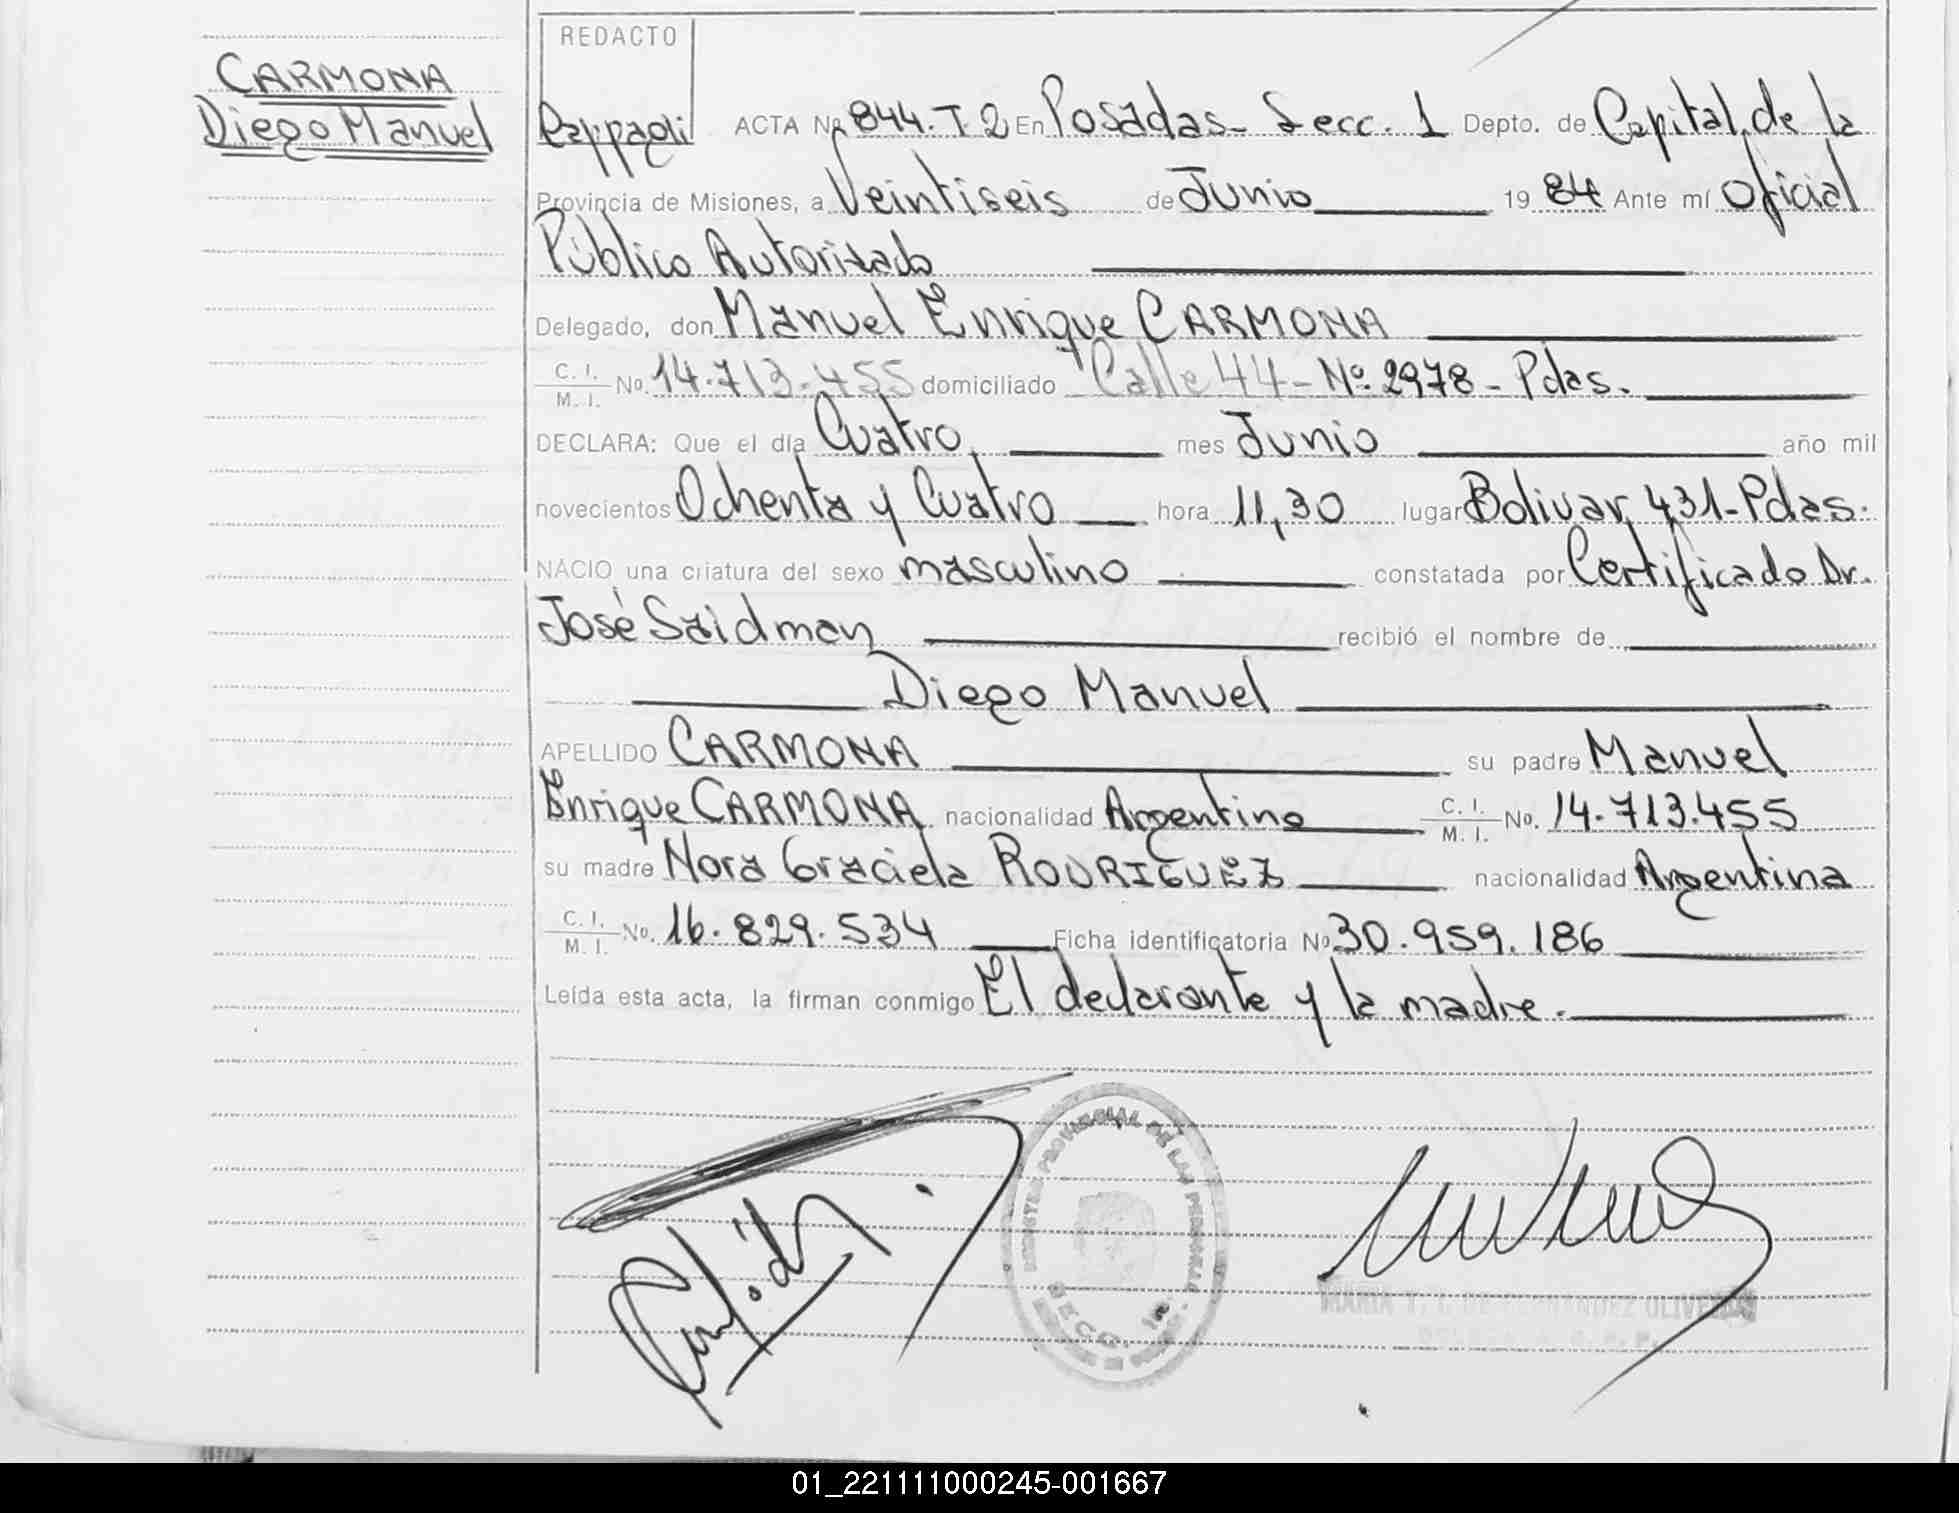 CARMONA
Diego Manuel
REDACTO
Pappaoli ACTA No 844. T. 2 En Posadas - Secc. 1 Depto. de Capital, de la
Provincia de Misiones, a Veintiseis de Junio 19 84 Ante mí Oficial
Público Autorizado
Delegado, don Manuel Enrique CARMONA
C. I. / M. I. No. 14.713.455 domiciliado Calle 44 - Nº 2978 - Pdas.
DECLARA: Que el día Cuatro mes Junio año mil
novecientos Ochenta y Cuatro hora 11,30 lugar Bolivar 431 - Pdas.
NACIO una criatura del sexo masculino constatada por Certificado Dr.
José Saidman recibió el nombre de
Diego Manuel
APELLIDO CARMONA su padre Manuel
Enrique CARMONA nacionalidad Argentino C. I. / M. I. No. 14.713.455
su madre Nora Graciela RODRIGUEZ nacionalidad Argentina
C. I. / M. I. No. 16.829.534 Ficha identificatoria No 30.959.186
Leída esta acta, la firman conmigo El declarante y la madre.
REGISTRO PROVINCIAL DE LAS PERSONAS
SECC. 1a
MARIA T. DE FERNANDEZ OLIVEIRA
01_221111000245-001667